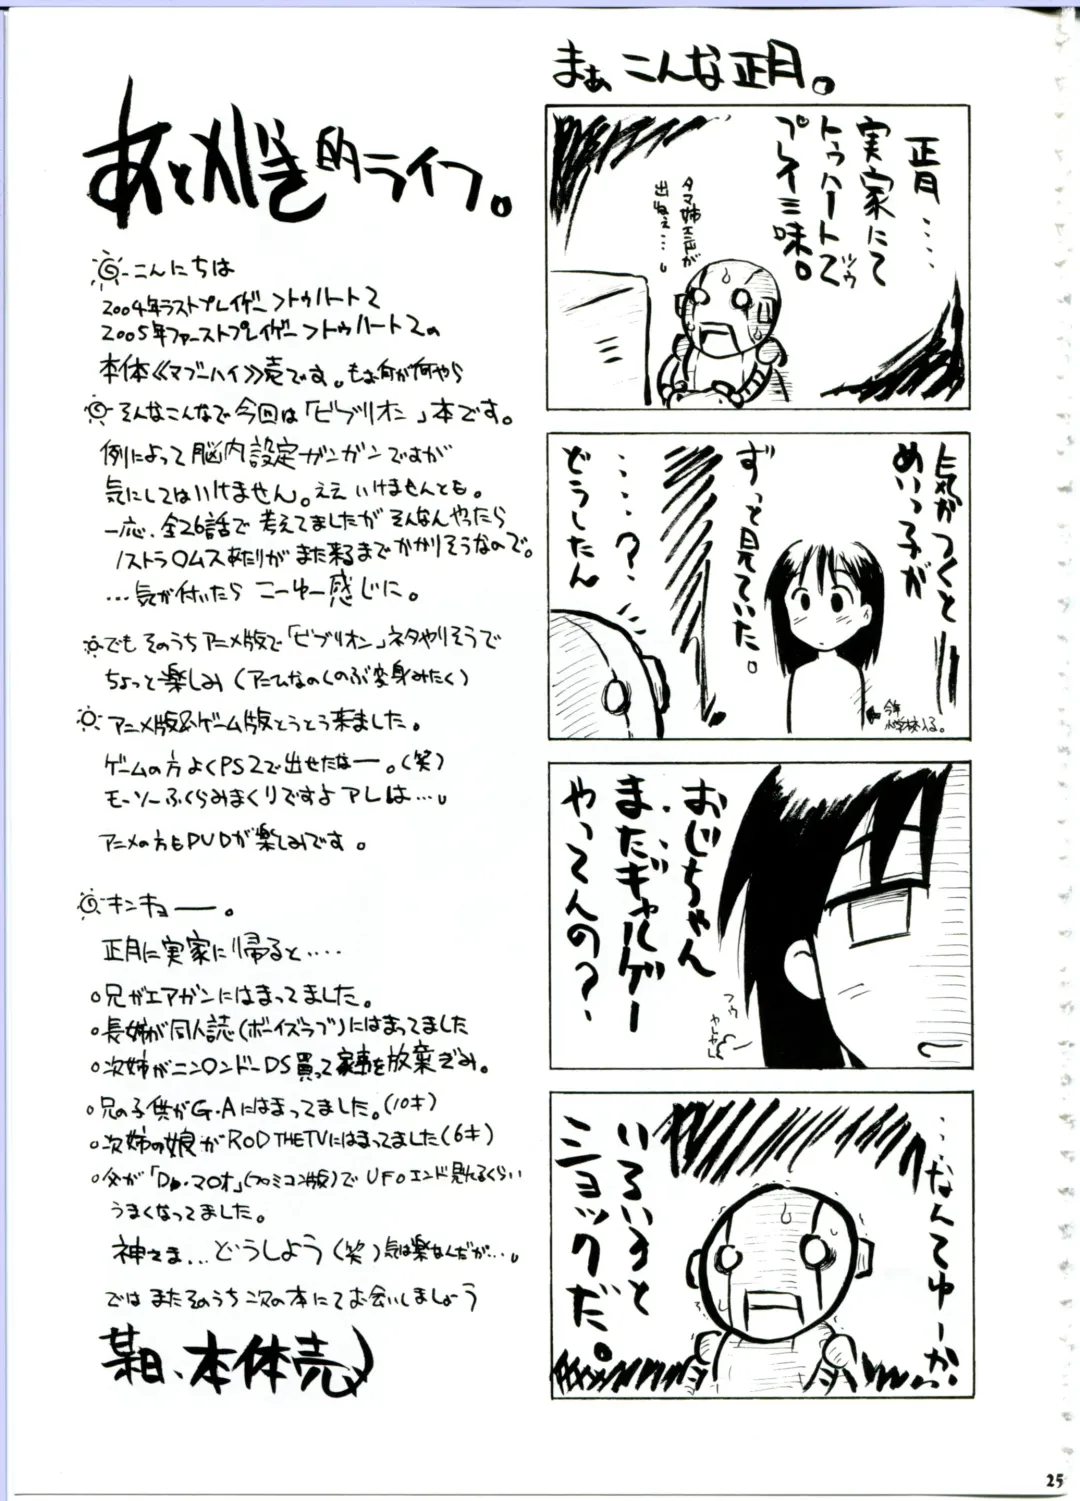 まぁ こんな正月。
正月・・・・
実家にて
トゥハート2
ツウ
プレイ三味。
タマ姉エンドが
出ねぇ…。
気がつくと
めいっ子が
ずっと見ていた。
・・・・?
どうしたん
今年
小学校入る。
おじちゃん
またギャルゲー
やってんの?
フゥ
ヤレヤレ
…なんてゆーか、
いろいろと
ショックだ。
あとがき的ライフ。
こんにちは
2004年ラストプレイゲーントゥハート2
2005年ファーストプレイゲーントゥハート2の
本体《マブーハイ》売です。もぉ何が何やら
そんなこんなで今回は「ビブリオン」本です。
例によって脳内設定ガンガンですが
気にしてはいけません。ええいけませんとも。
一応、全26話で考えてましたがそんなんやったら
ノストラ○ムスあたりがまた来るまでかかりそうなので。
…気が付いたらこーゆー感じに。
でもそのうちアニメ版で「ビブリオン」ネタやりそうで
ちょっと楽しみ(アニムなのくのぶ変身みたく)
アニメ版&ゲーム版とうとう来ました。
ゲームの方よくPS2で出せたなー。(笑)
モーソーふくらみまくりですよアレは…。
アニメの方もDVDが楽しみです。
キンキョー。
正月に実家に帰ると・・・・
○兄がエアガンにはまってました。
○長姉が同人誌(ボーイズラブ)にはまってました
○次姉がニン○ンドーDS買って家事を放棄ぎみ。
○兄の子供がG・Aにはまってました。(10才)
○次姉の娘がROD THE TVにはまってました(6才)
○父が「Dr.マ○オ」(ファミコン版)でUFOエンド見れるくらい
うまくなってました。
神さま…どうしよう(笑)気は楽なんだが…。
ではまたそのうち次の本にてお会いしましょう
某日、本体売
25